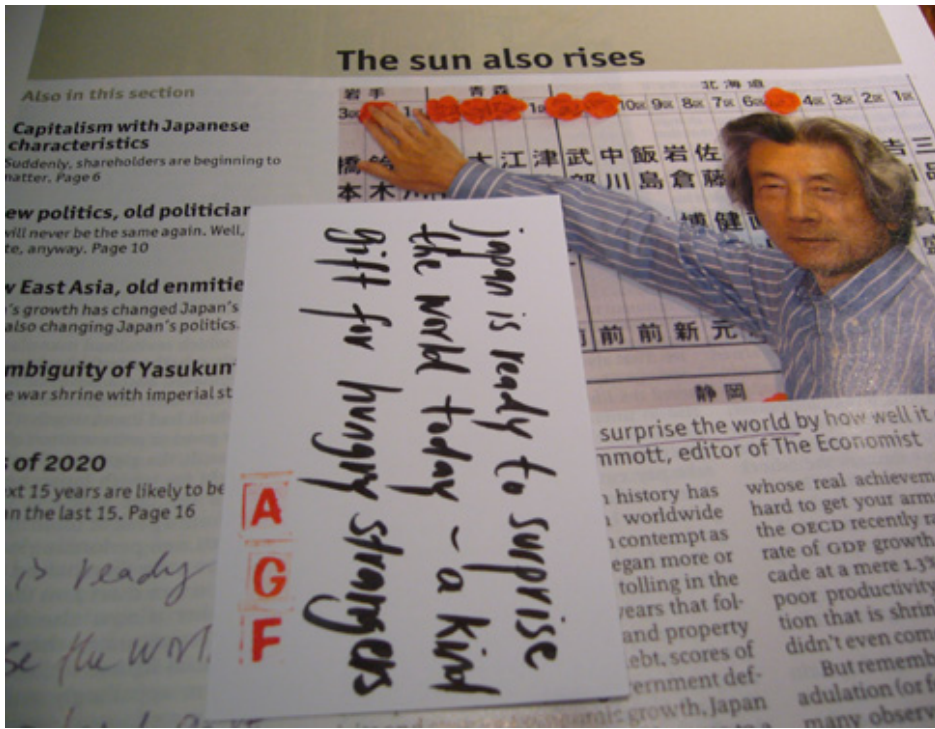 The sun also rises
Also in this section
Capitalism with Japanese
characteristics
Suddenly, shareholders are beginning to
matter. Page 6
ew politics, old politician
will never be the same again. Well,
te, anyway. Page 10
w East Asia, old enmitie
's growth has changed Japan's
also changing Japan's politics.
mbiguity of Yasukun
e war shrine with imperial st
s of 2020
xt 15 years are likely to be
n the last 15. Page 16
is ready
se the worl
岩手
青森
北海道
3区 1区 1区 10区 9区 8区 7区 6区 4区 3区 2区 1区
橋 大 江 津 武 中 飯 岩 佐 吉 三
本 木 川 部 川 島 倉 藤 品
博 健
前 前 新 元
静岡
japan is ready to surprise
the world today – a kind
gift for hungry strangers
A
G
F
surprise the world by how well it
mmott, editor of The Economist
n history has
worldwide
contempt as
egan more or
tolling in the
years that fol-
and property
ebt, scores of
ernment def-
onomic growth, Japan
whose real achievem
hard to get your arms
the OECD recently ra
rate of GDP growth
cade at a mere 1.3%
poor productivity
tion that is shrin
didn't even com
But rememb
adulation (or f
many observ